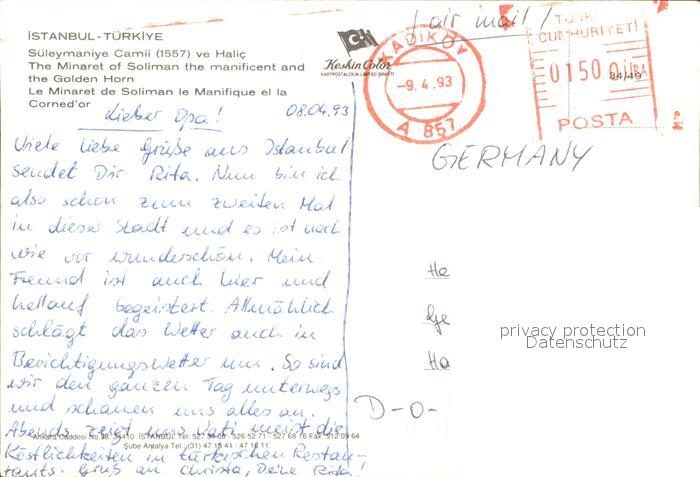 İSTANBUL-TÜRKİYE
Süleymaniye Camii (1557) ve Haliç
The Minaret of Soliman the manificent and
the Golden Horn
Le Minaret de Soliman le Manifique el la
Corned'or
Keskin Color
KARTPOSTALCILIK LIMITED ŞİRKETİ
/ air mail /
KADIKÖY
-9. 4. 93
A 857
CUMHURİYETİ
0150
POSTA
34/49
Lieber Opa! 08.04.93
Viele liebe Grüße aus Istanbul
sendet Dir Rita. Nun bin ich
also schon zum zweiten Mal
in dieser Stadt und es ist nach
wie vor wunderschön. Mein
Freund ist auch hier und
hellauf begeistert. Allmählich
schlägt das Wetter auch in
Besichtigungswetter um. So sind
wir den ganzen Tag unterwegs
und schauen uns alles an.
Abends zeigt uns Vati meist die
Köstlichkeiten in türkischen Restau-
rants. Gruß an Christa, Deine Rita!
GERMANY
He
Ge
Ha
D-0-
privacy protection
Datenschutz
Ankara Caddesi No.98 34410 İSTANBUL Tel: 527 34 08 - 526 52 71 - 527 68 16 Fax 512 09 64
Şube Antalya Tel: (31) 47 15 41 - 47 16 11